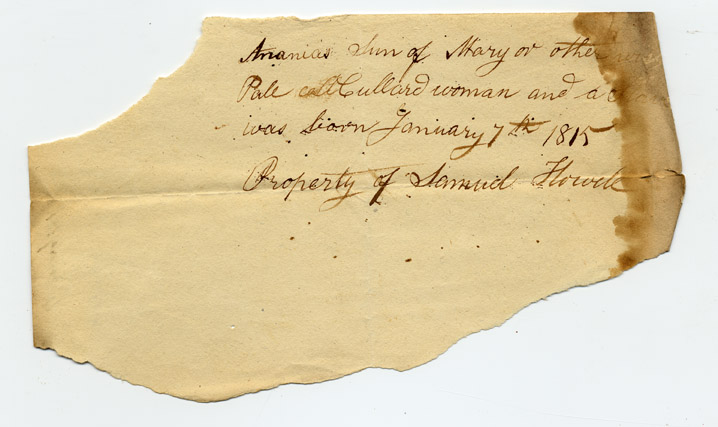 Ananias Sun of Mary or other
Pale call Cullard woman and a
was born January 7th 1815
Property of Samuel